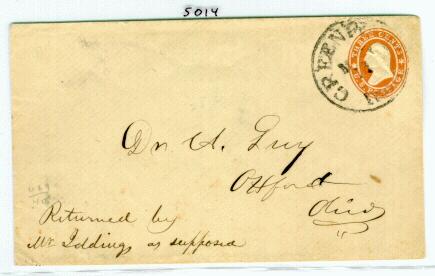 5014
THREE CENTS
GREEN
Dr. A. Guy
Oxford
Ohio
Returned by
Mr Iddings as supposed